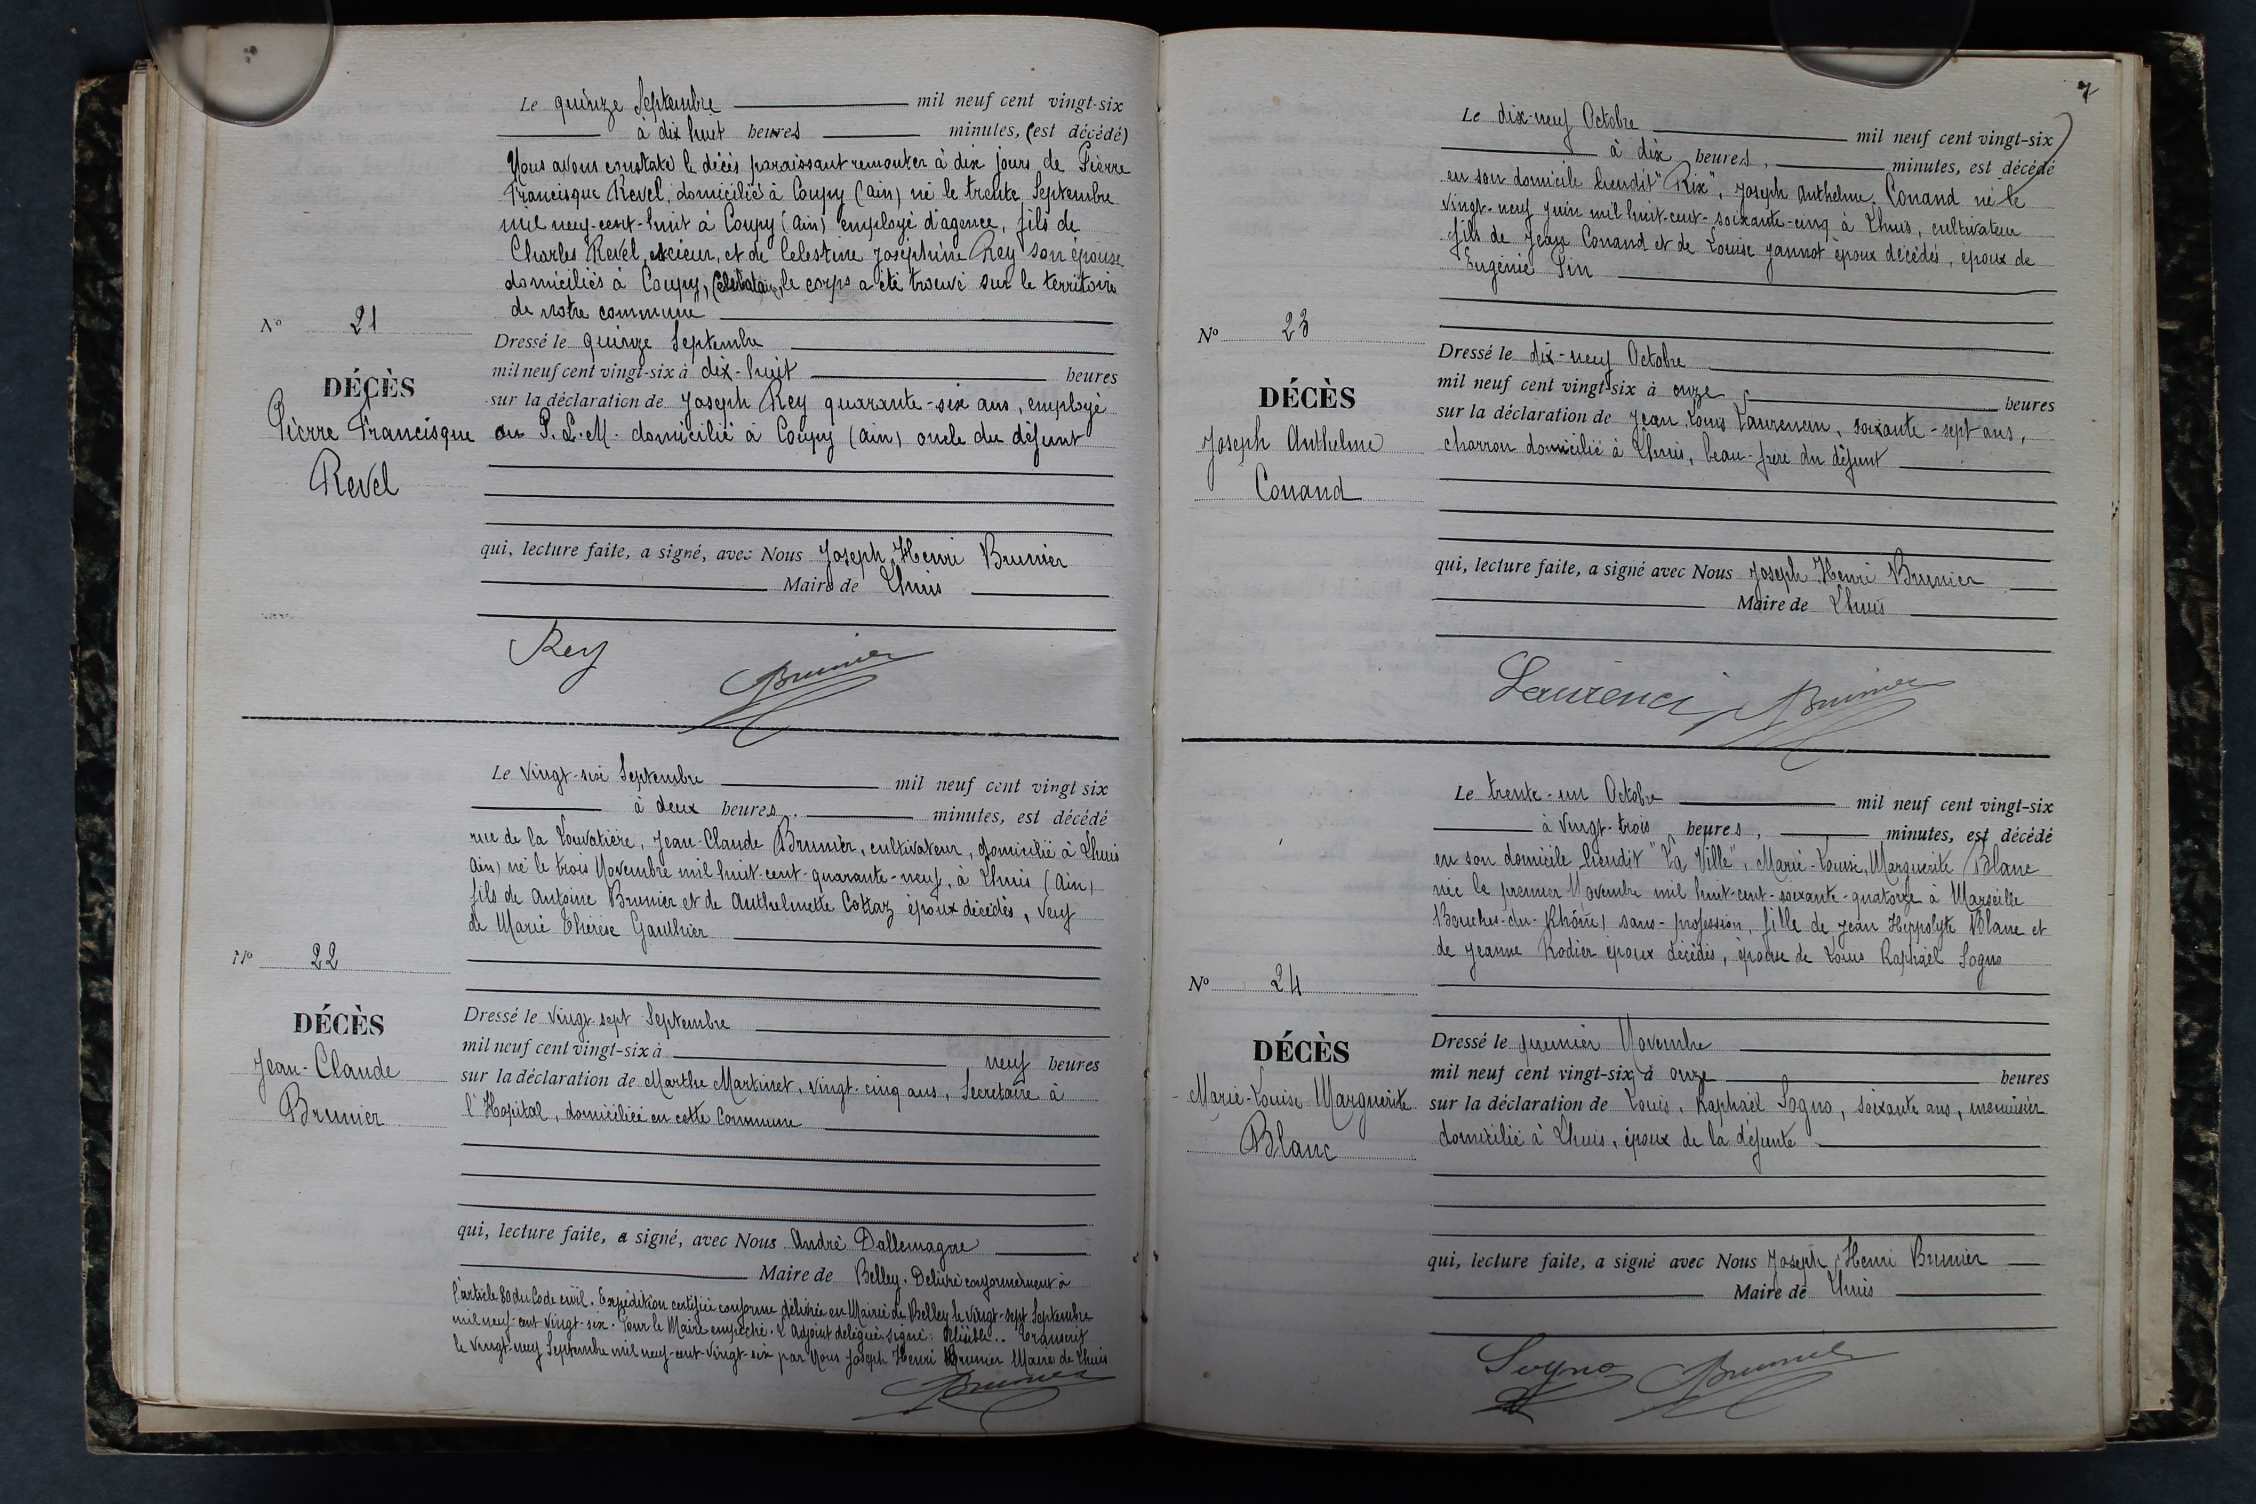 Le quinze Septembre mil neuf cent vingt-six
à dix huit heures minutes, (est décédé)
Nous avons constaté le décès paraissant remonter à dix jours de Pierre
Francisque Revel, domicilié à Coupy (Ain) né le trente Septembre
mil neuf-cent-huit à Coupy (Ain) employé d'agence, fils de
Charles Revel, scieur, et de Celestine Joséphine Rey son épouse
domiciliés à Coupy, Célibataire, le corps a été trouvé sur le territoire
de notre commune
No 21
Dressé le quinze Septembre
mil neuf cent vingt-six à dix-huit heures
DÉCÈS
sur la déclaration de Joseph Rey quarante-six ans, employé
Pierre Francisque
au P.L.M. domicilié à Coupy (Ain) oncle du défunt
Revel
qui, lecture faite, a signé, avec Nous Joseph Henri Brunier
Maire de Lhuis
Rey Brunier
Le vingt-six Septembre mil neuf cent vingt six
à deux heures minutes, est décédé
rue de la Louvatière, Jean-Claude Brunier, cultivateur, domicilié à Lhuis
Ain) né le trois Novembre mil huit-cent-quarante-neuf, à Lhuis (Ain)
fils de Antoine Brunier et de Anthelmette Cottaz époux décédés, veuf
de Marie Thérèse Gauthier
No 22
Dressé le vingt sept Septembre
DÉCÈS
mil neuf cent vingt-six à neuf heures
Jean-Claude
sur la déclaration de Marthe Martinet, vingt-cinq ans, Secrétaire à
Brunier
l'Hopital, domiciliée en cette Commune
qui, lecture faite, a signé, avec Nous André Dallemagne
Maire de Belley. Délivré conformément à
l'article 80 du Code civil. Expédition certifiée conforme délivrée en Mairie de Belley le vingt-sept Septembre
mil neuf-cent vingt-six. Pour le Maire empêché. L'adjoint délégué signé: illisible.. Transcrit
le vingt-neuf Septembre mil neuf-cent-vingt-six par Nous Joseph Henri Brunier Maire de Lhuis
Brunier
7
Le dix-neuf Octobre mil neuf cent vingt-six
à dix heures, minutes, est décédé
en son domicile lieudit "Rix", Joseph Anthelme Conand né le
vingt-neuf Juin mil huit-cent-soixante-cinq à Lhuis, cultivateur
fils de Jean Conand et de Louise Jannot époux décédés, époux de
Eugénie Pin
No 23
Dressé le dix-neuf Octobre
DÉCÈS
mil neuf cent vingt-six à onze heures
Joseph Anthelme
sur la déclaration de Jean Louis Laurencin, soixante-sept ans,
charron domicilié à Lhuis, beau-frère du défunt
Conand
qui, lecture faite, a signé avec Nous Joseph Henri Brunier
Maire de Lhuis
Laurenci Brunier
Le trente-un Octobre mil neuf cent vingt-six
à vingt-trois heures, minutes, est décédé
en son domicile lieudit "La Ville", Marie-Louise, Marguerite Blanc
née le premier Novembre mil huit-cent-soixante-quatorze à Marseille
Bouches-du-Rhône) sans-profession, fille de Jean Hippolyte Blanc et
de Jeanne Rodier époux décédés, épouse de Louis Raphaël Sogno
No 24
Dressé le premier Novembre
DÉCÈS
mil neuf cent vingt-six à onze heures
Marie-Louise Marguerite
sur la déclaration de Louis, Raphaël Sogno, soixante ans, menuisier
Blanc
domicilié à Lhuis, époux de la défunte
qui, lecture faite, a signé avec Nous Joseph Henri Brunier
Maire de Lhuis
Sogno Brunier